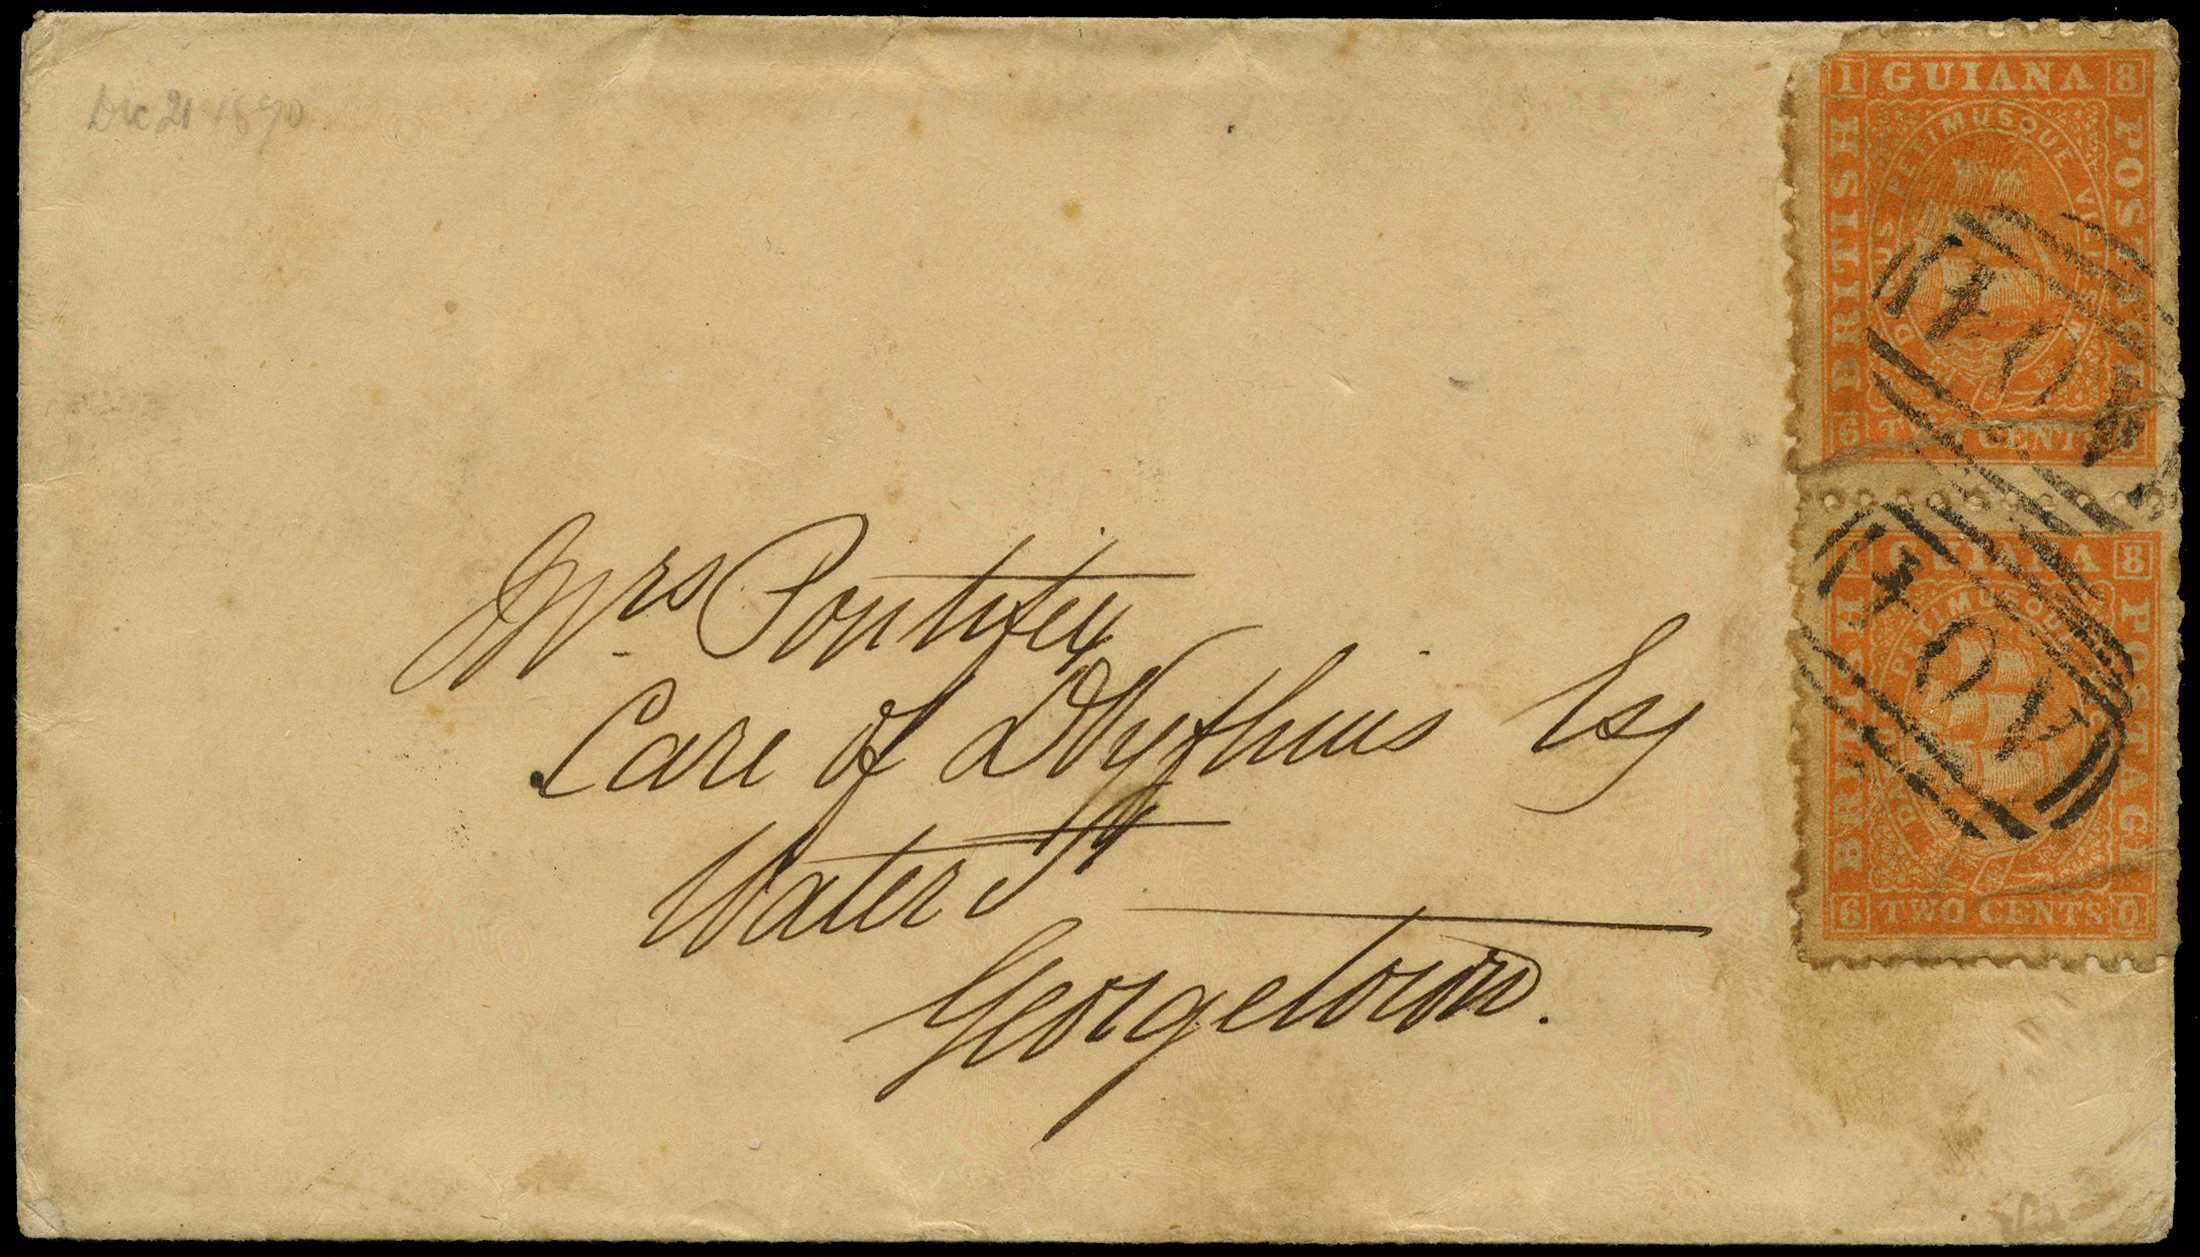 Dec 21 1870
1 GUIANA 8
BRITISH
POSTAGE
DAMUS PETIMUSQUE VICISSIM
6 TWO CENTS 0
A04
Mrs Pontifex
Care of Esq
Water St
Georgetown.
1 GUIANA 8
BRITISH
POSTAGE
PETIMUSQUE
6 TWO CENTS 0
A04